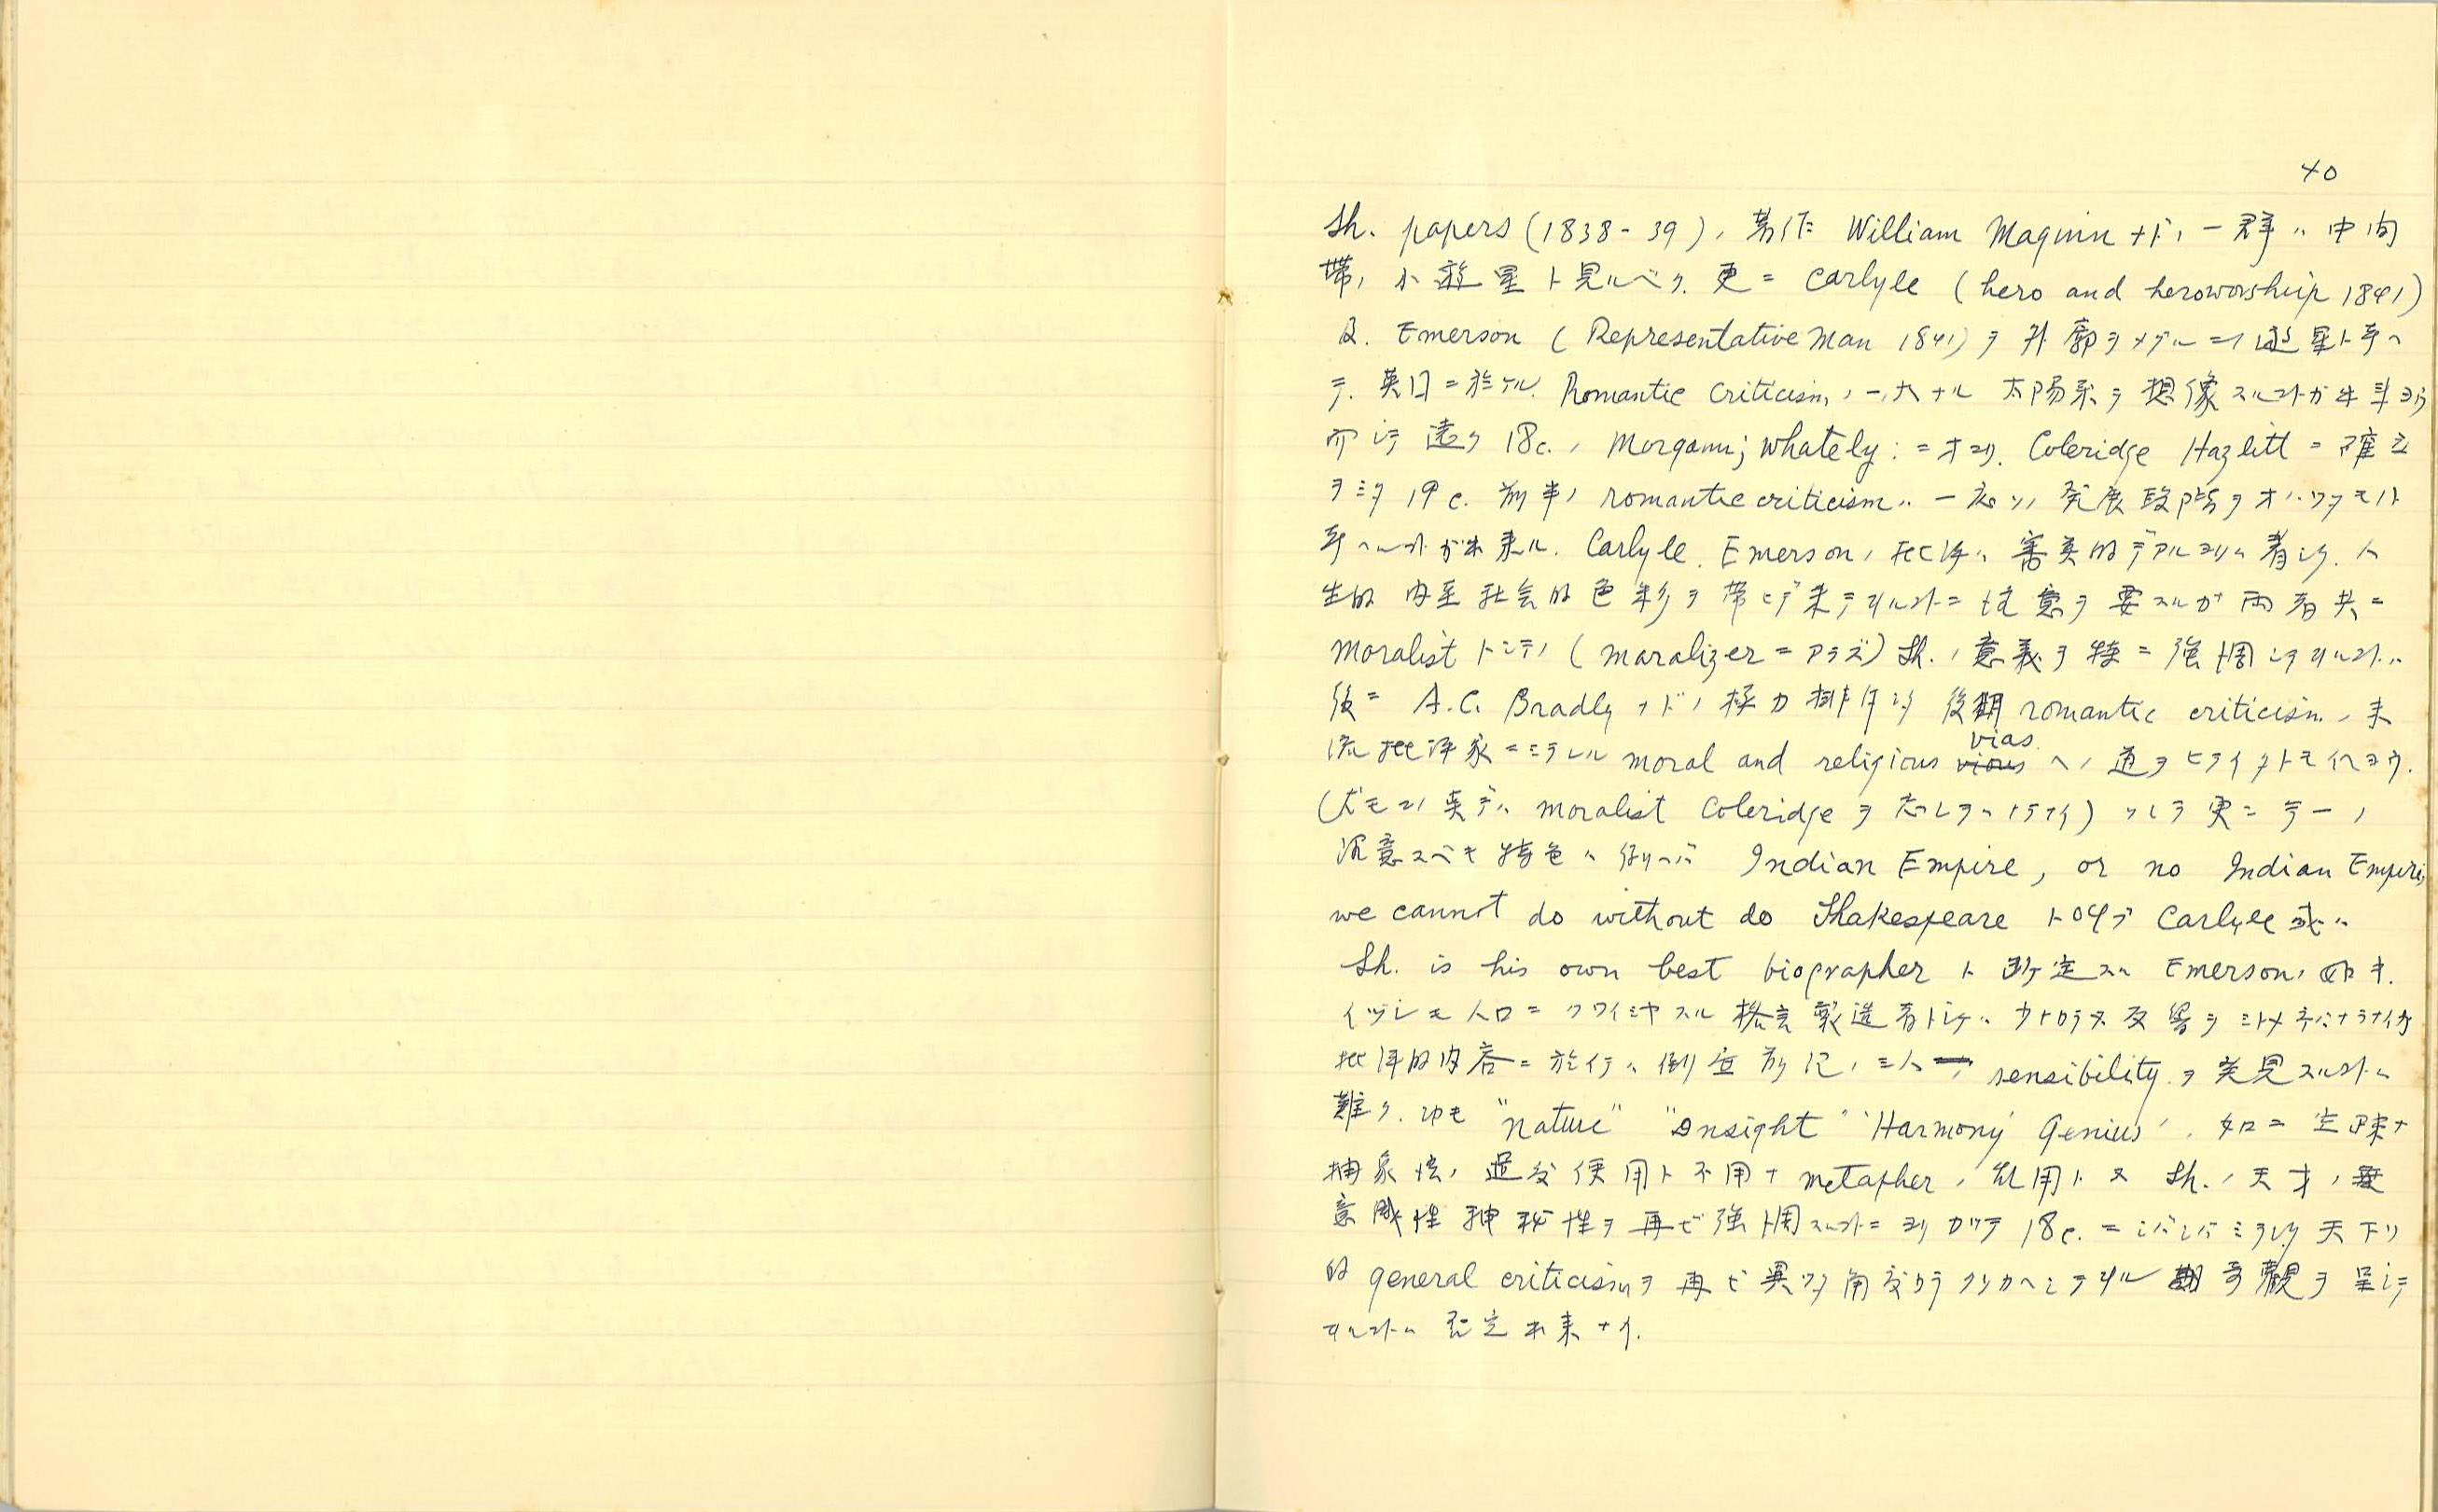 40
Sh. papers (1838-39), 著作 William Maguin ナドノ一群ハ中間
帯ノ小遊星ト見ルベク. 更ニ Carlyle (hero and heroworship 1841)
及. Emerson (Representative Man 1841) ヲ外廓ヲメグル二ツ遊星ト考ヘ
テ. 英国ニ於ケル. Romantic Criticism, ノ一大ナル 太陽系ヲ想像スルコトガ出来ヨウ
而シテ遠ク 18c. ノ Morgann; Whately: ニオコリ. Coleridge Hazlitt ニ確立
ヲミタ 19c. 前半ノ romantic criticism ハ一応ソノ発展段階ヲオハッタモノト
考ヘルコトガ出来ル. Carlyle. Emerson ノ批評ハ審美的デアルヨリハ著シク. 人
生的乃至社会的色彩ヲ帯ビテ来テヰルコトニ注意ヲ要スルガ両者共ニ
moralist トシテノ (maralizer ニアラズ) Sh. ノ意義ヲ特ニ強調シテヰルコトハ
後ニ A.C. Bradly ナドノ極力排斥シタ後期 romantic criticism ノ末
流批評家ニミラレル moral and religious vias ヘノ道ヲヒライタトモイヘヨウ.
(尤モコノ点デハ moralist Coleridge ヲ忘レテハナラナイ) ソレラ更ニ第一ノ
注意スベキ特色ハ例ヘバ Indian Empire, or no Indian Empire,
we cannot do without do Shakespeare ト叫ブ Carlyle 或ハ
Sh. is his own best biographer ト断定スル Emerson ノ如キ.
イヅレモ人口ニクワイシャスル格言製造者トシテハ 反響ヲミトメネバナラナイガ
批評的内容ニ於イテハ例ヘ前記ノ三人 sensibility ヲ発見スルコトハ
難ク. 而モ "nature" "Insight" 'Harmony' Genius'. 如ニ空疎ナ
抽象性ノ過度使用ト不用ナ metapher ノ乱用ト又 Sh. ノ天才ノ無
意識性神秘性ヲ再ビ強調スルコトニヨリカツテ 18c. ニシバシバミラレタ天下リ
的 general criticism ヲ再ビ異ッタ角度カラクリカヘシテヰル奇観ヲ呈シテ
ヰルコトハ否定出来ナイ.